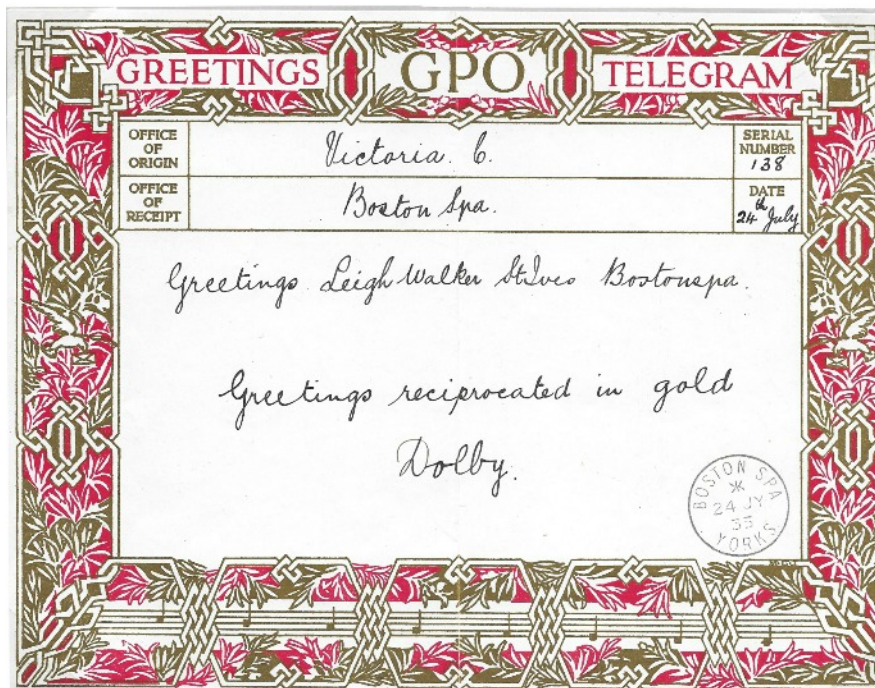 GREETINGS GPO TELEGRAM
OFFICE
OF
ORIGIN
Victoria. C.
SERIAL
NUMBER
138
OFFICE
OF
RECEIPT
Boston Spa.
DATE
24th July
Greetings Leigh Walker St. Ives Bostonspa.
Greetings reciprocated in gold
Dolby.
BOSTON SPA
24 JY
35
YORKS.